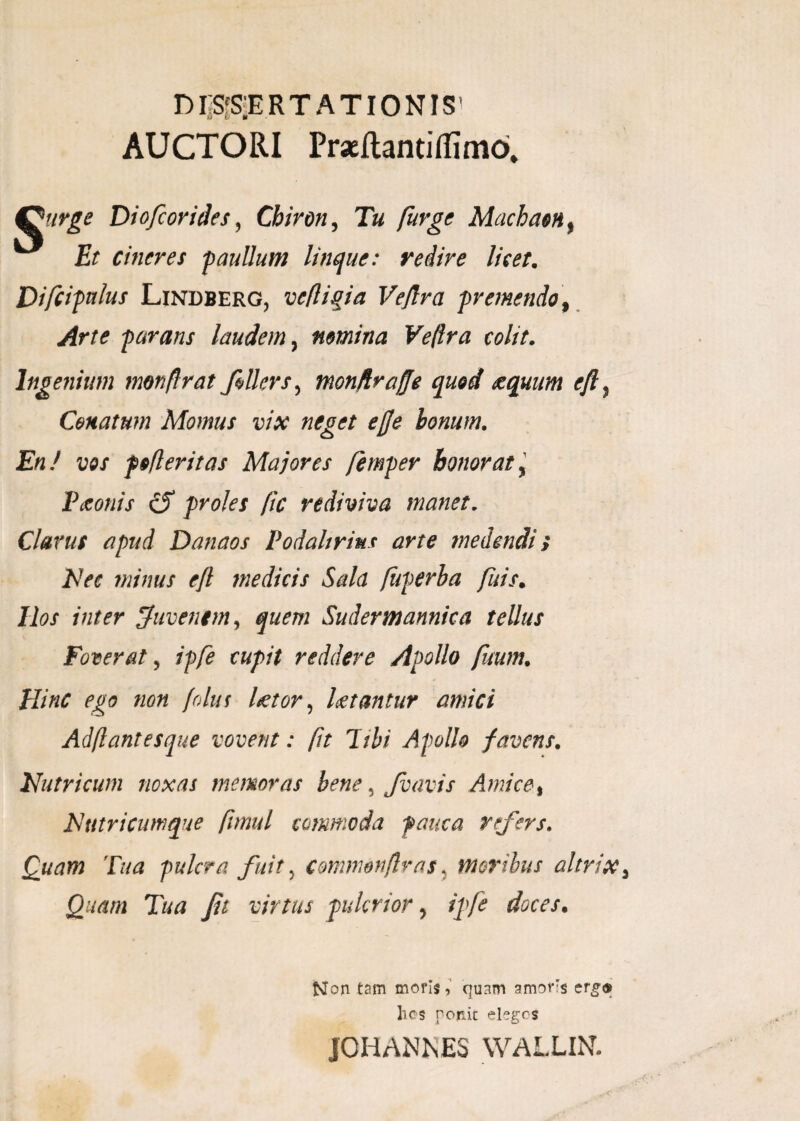 DISSERTATIONIS
AUCTORI Præſtantiſſimo.
Surge Dioſcorides, Chiron, Tu ſurge Machaon,
Et cineres paullum linque: redire licet.
Diſcipulus LINDBERG, veſtigia Veſtra premendo,
Arte parans laudem, nomina Veſtra colit.
Ingenium monſtrat ſollers, monſtraſſe quod æquum eſt,
Conatum Momus vix neget eſſe bonum.
En! vos poſteritas Majores ſemper honorat,
Pæonis & proles ſic rediviva manet.
Clarus apud Danaos Podalirius arte medendi;
Nec minus eſt medicis Sala ſuperba ſuis.
Hos inter Juvenem, quem Sudermannica tellus
Foverat, ipſe cupit reddere Apollo ſuum.
Hinc ego non ſolus lætor, lætantur amici
Adſtantesque vovent: ſit Tibi Apollo favens.
Nutricum noxas memoras bene, ſvavis Amice,
Nutricumque ſimul commoda pauca refers.
Quam Tua pulcra fuit, commonſtras, moribus altrix,
Quam Tua ſit virtus pulcrior, ipſe doces.
Non tam moris, quam amoris ergo
hos ponit elegos
JOHANNES WALLIN.